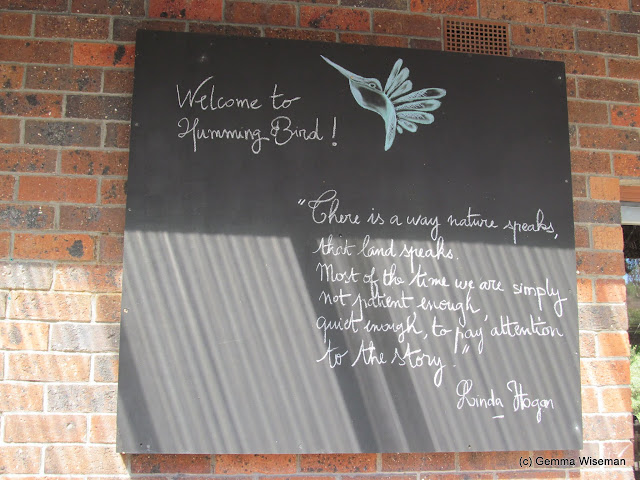 Welcome to
Humming Bird!
"There is a way nature speaks,
that land speaks.
Most of the time we are simply
not patient enough,
quiet enough, to pay attention
to the story."
Linda Hogan
(c) Gemma Wiseman